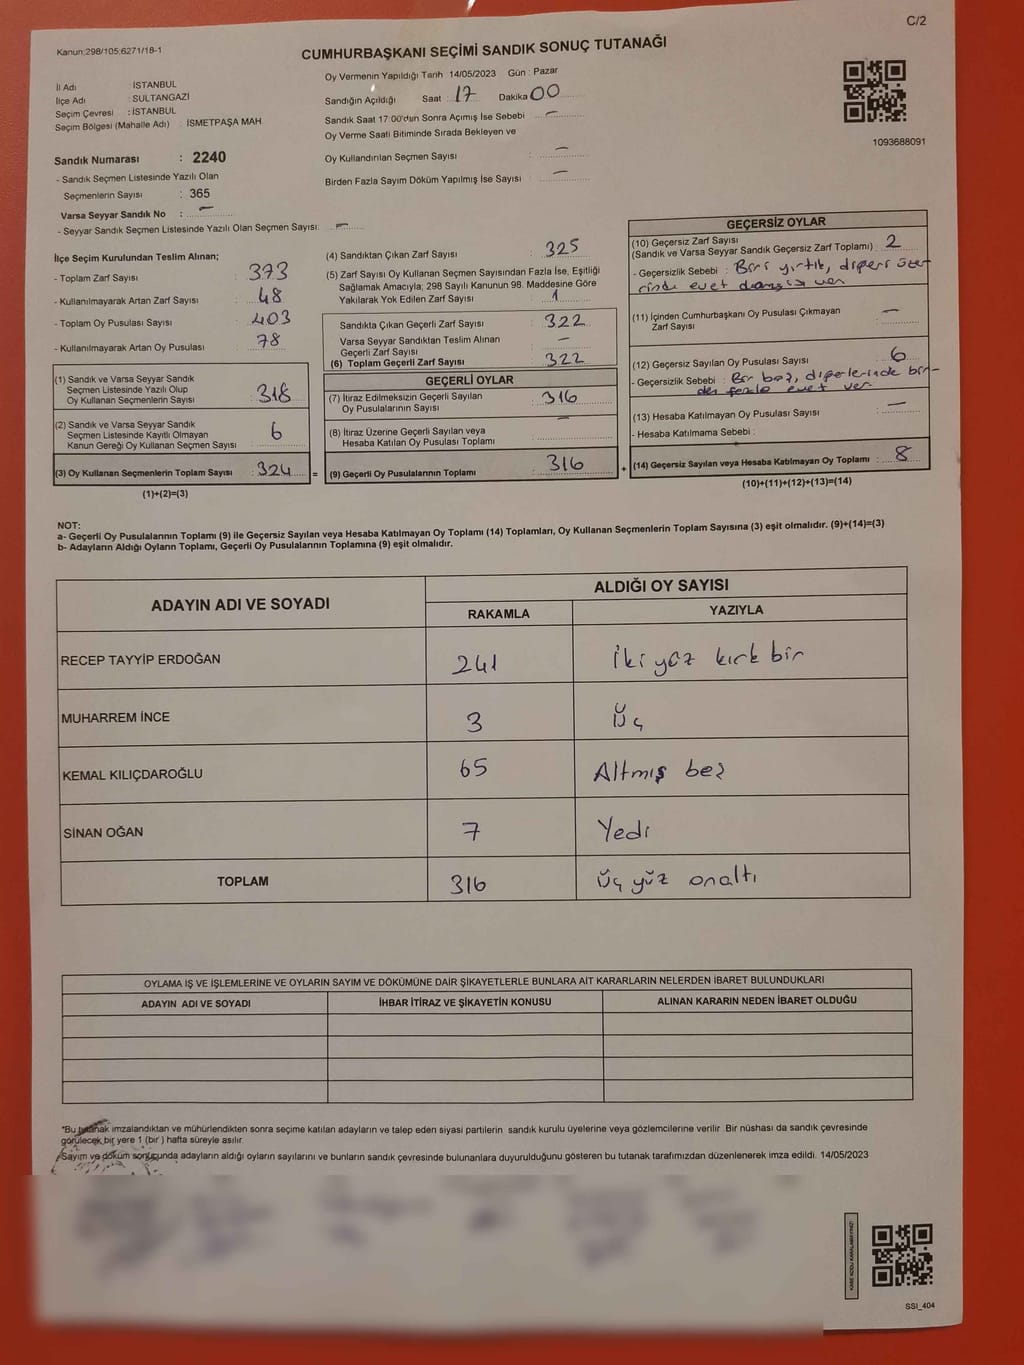 C/2
Kanun:298/105;6271/18-1
CUMHURBAŞKANI SEÇİMİ SANDIK SONUÇ TUTANAĞI
İl Adı İSTANBUL
İlçe Adı : SULTANGAZİ
Seçim Çevresi : İSTANBUL
Seçim Bölgesi (Mahalle Adı) : İSMETPAŞA MAH.
Sandık Numarası : 2240
- Sandık Seçmen Listesinde Yazılı Olan
Seçmenlerin Sayısı : 365
Varsa Seyyar Sandık No : —
- Seyyar Sandık Seçmen Listesinde Yazılı Olan Seçmen Sayısı: —
Oy Vermenin Yapıldığı Tarih 14/05/2023 Gün : Pazar
Sandığın Açıldığı Saat : 17 Dakika 00
Sandık Saat 17:00'dan Sonra Açımış İse Sebebi : —
Oy Verme Saati Bitiminde Sırada Bekleyen ve
Oy Kullandırılan Seçmen Sayısı : —
Birden Fazla Sayım Döküm Yapılmış İse Sayısı : —
1093688091
İlçe Seçim Kurulundan Teslim Alınan;
- Toplam Zarf Sayısı : 373
- Kullanılmayarak Artan Zarf Sayısı : 48
- Toplam Oy Pusulası Sayısı : 403
- Kullanılmayarak Artan Oy Pusulası : 78
(1) Sandık ve Varsa Seyyar Sandık
Seçmen Listesinde Yazılı Olup
Oy Kullanan Seçmenlerin Sayısı : 318
(2) Sandık ve Varsa Seyyar Sandık
Seçmen Listesinde Kayıtlı Olmayan
Kanun Gereği Oy Kullanan Seçmen Sayısı : 6
(3) Oy Kullanan Seçmenlerin Toplam Sayısı : 324 =
(1)+(2)=(3)
(4) Sandıktan Çıkan Zarf Sayısı : 325
(5) Zarf Sayısı Oy Kullanan Seçmen Sayısından Fazla İse, Eşitliği
Sağlamak Amacıyla; 298 Sayılı Kanunun 98. Maddesine Göre
Yakılarak Yok Edilen Zarf Sayısı : 1
Sandıkta Çıkan Geçerli Zarf Sayısı : 322
Varsa Seyyar Sandıktan Teslim Alınan
Geçerli Zarf Sayısı : —
(6) Toplam Geçerli Zarf Sayısı : 322
GEÇERLİ OYLAR
(7) İtiraz Edilmeksizin Geçerli Sayılan
Oy Pusulalarının Sayısı : 316
(8) İtiraz Üzerine Geçerli Sayılan veya
Hesaba Katılan Oy Pusulası Toplamı :
(9) Geçerli Oy Pusulalarının Toplamı : 316 +
GEÇERSİZ OYLAR
(10) Geçersiz Zarf Sayısı
(Sandık ve Varsa Seyyar Sandık Geçersiz Zarf Toplamı) : 2
- Geçersizlik Sebebi : Biri yırtık, diğeri üze-
rinde evet damgası var
(11) İçinden Cumhurbaşkanı Oy Pusulası Çıkmayan
Zarf Sayısı : —
(12) Geçersiz Sayılan Oy Pusulası Sayısı : 6
- Geçersizlik Sebebi : Biri boş, diğerlerinde bir-
den fazla evet var
(13) Hesaba Katılmayan Oy Pusulası Sayısı : —
- Hesaba Katılmama Sebebi :
(14) Geçersiz Sayılan veya Hesaba Katılmayan Oy Toplamı : 8
(10)+(11)+(12)+(13)=(14)
NOT:
a- Geçerli Oy Pusulalarının Toplamı (9) ile Geçersiz Sayılan veya Hesaba Katılmayan Oy Toplamı (14) Toplamları, Oy Kullanan Seçmenlerin Toplam Sayısına (3) eşit olmalıdır. (9)+(14)=(3)
b- Adayların Aldığı Oyların Toplamı, Geçerli Oy Pusulalarının Toplamına (9) eşit olmalıdır.
ADAYIN ADI VE SOYADI ALDIĞI OY SAYISI
RAKAMLA YAZIYLA
RECEP TAYYİP ERDOĞAN 241 İki yüz kırk bir
MUHARREM İNCE 3 Üç
KEMAL KILIÇDAROĞLU 65 Altmış beş
SİNAN OĞAN 7 Yedi
TOPLAM 316 Üç yüz onaltı
OYLAMA İŞ VE İŞLEMLERİNE VE OYLARIN SAYIM VE DÖKÜMÜNE DAİR ŞİKAYETLERLE BUNLARA AİT KARARLARIN NELERDEN İBARET BULUNDUKLARI
ADAYIN ADI VE SOYADI İHBAR İTİRAZ VE ŞİKAYETİN KONUSU ALINAN KARARIN NEDEN İBARET OLDUĞU
*Bu tutanak imzalandıktan ve mühürlendikten sonra seçime katılan adayların ve talep eden siyasi partilerin sandık kurulu üyelerine veya gözlemcilerine verilir. Bir nüshası da sandık çevresinde
görülecek bir yere 1 (bir) hafta süreyle asılır.
Sayım ve döküm sonucunda adayların aldığı oyların sayılarını ve bunların sandık çevresinde bulunanlara duyurulduğunu gösteren bu tutanak tarafımızdan düzenlenerek imza edildi. 14/05/2023
KARE KODU KARALAMAYINIZ!
SSİ_404